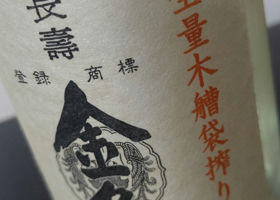 全量木艚袋搾り
長壽
登録 商標
金